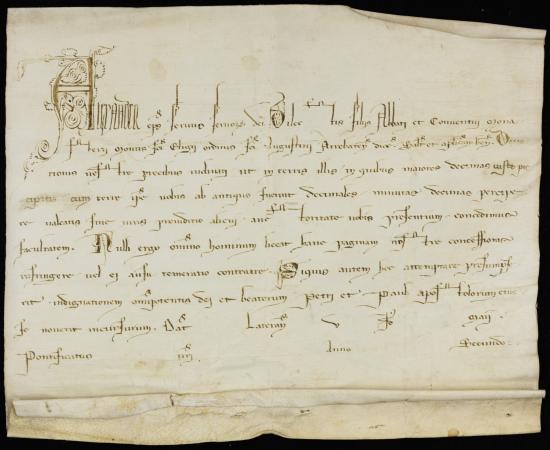 Alexander ep̄s seruus seruoꝝ dei Dilectis filiis Abbati et Conuentui Mona
sterii Montis sc̄i Eligii ordinis sc̄i Augustini Atrebateñ dioc̄ salt̄ et ap̄licam beñ.
tionis vestre precibus inclinati ut in terris illis in quibus maiores decimas
percipitis cum terre ip̄e uobis ab antiquo fuerint decimales minutas decimas percipe
re ualeatis sine iuris preiuditio alieni auctoritate uobis presentium concedimus
facultatem. Nulli ergo omnino hominum liceat hanc paginam nostre concessionis
infringere uel ei ausu temerario contraire. Siquis autem hoc attemptare presumps
erit indignationem omnipotentis dei et beatorum Petri et Pauli apostolorum eius
se nouerit incursurum. Dat̄ Laterañ v maii
Pontificatus nr̄i Anno Secundo.